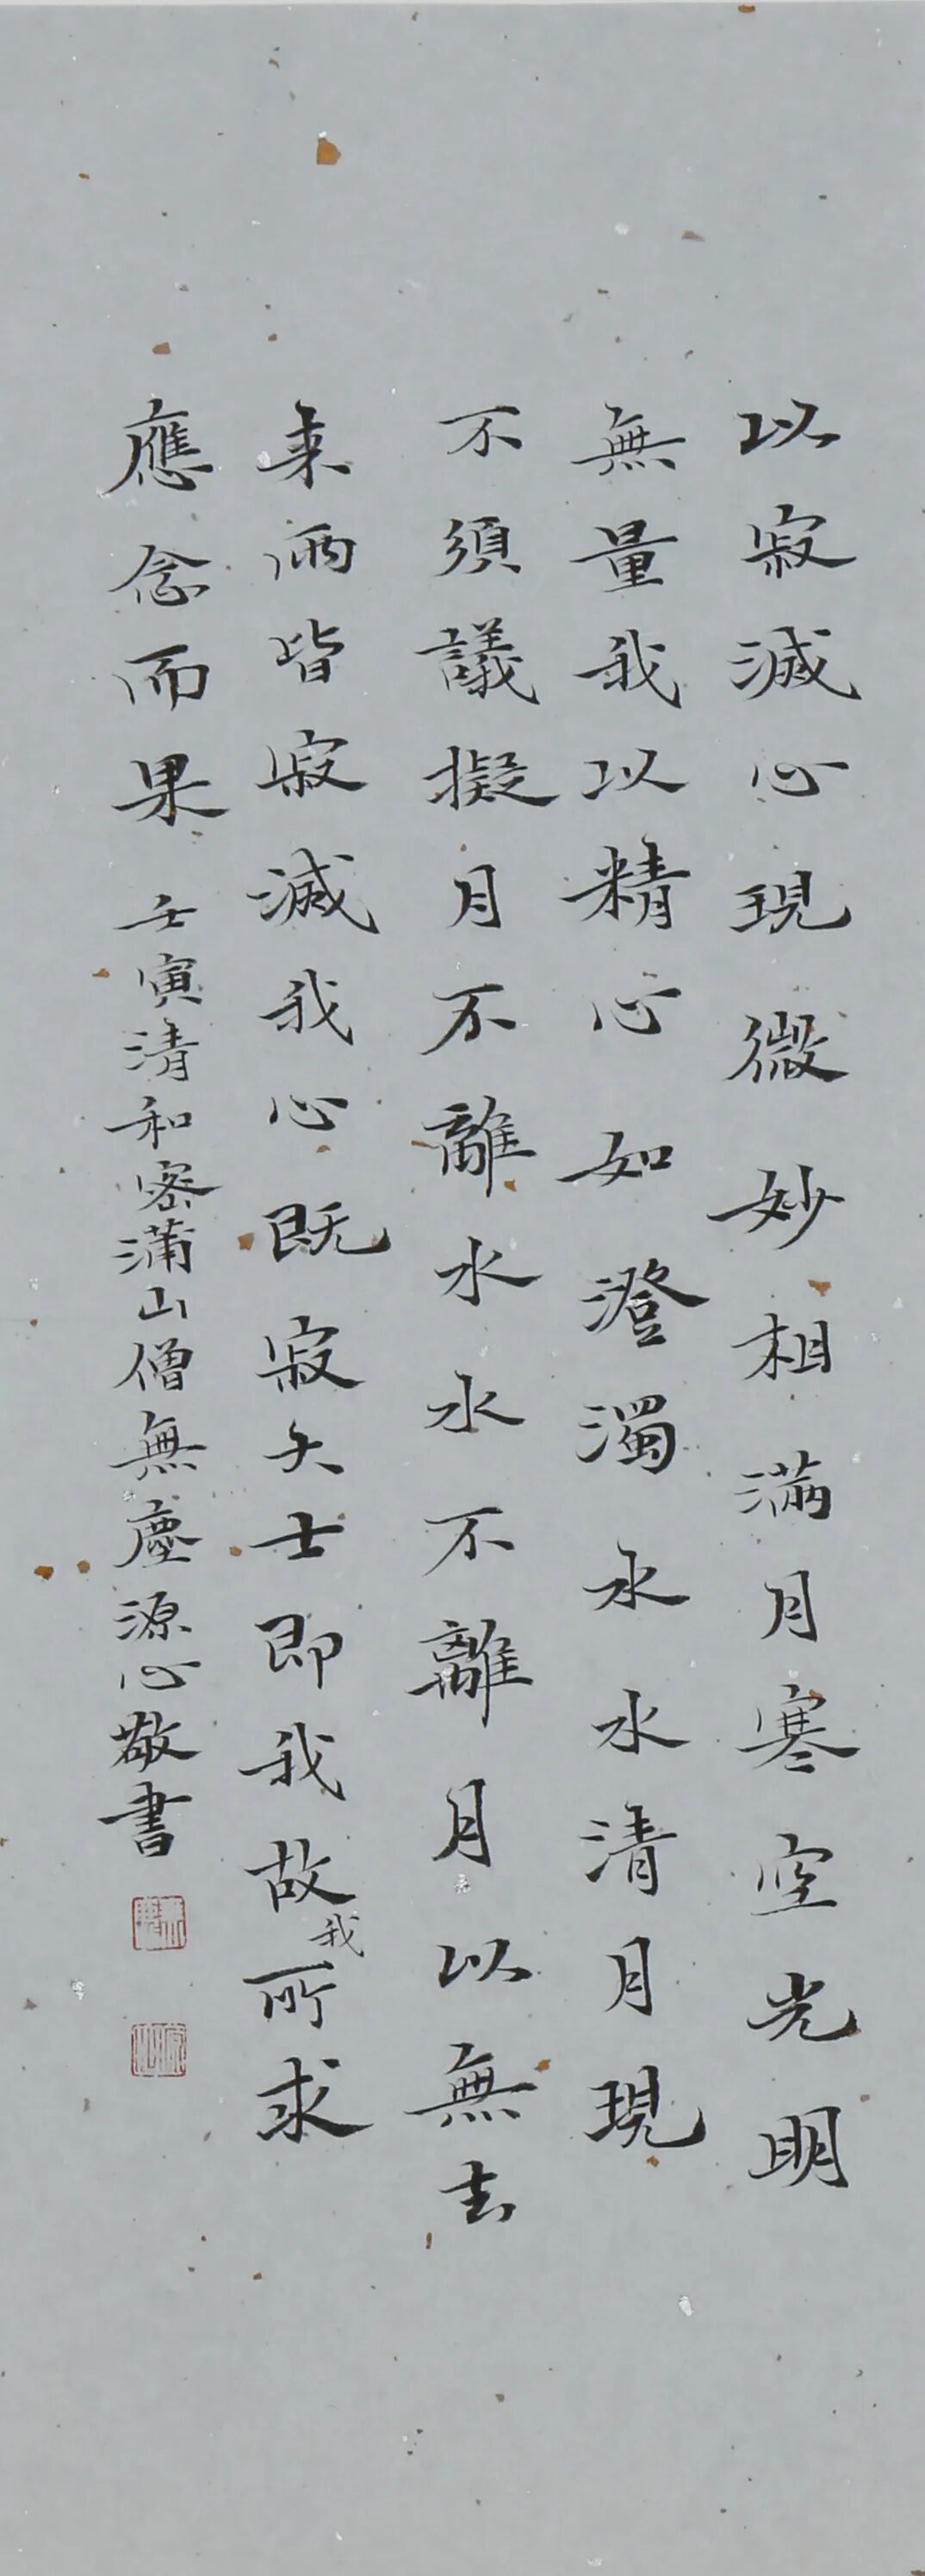 以寂滅心現微妙相滿月寒空光明
無量我以精心如澄濁水水清月現
不須議擬月不離水水不離月以無去
來兩皆寂滅我心既寂大士即我故我所求
應念而果
壬寅清和密蒲山僧無塵源心敬書